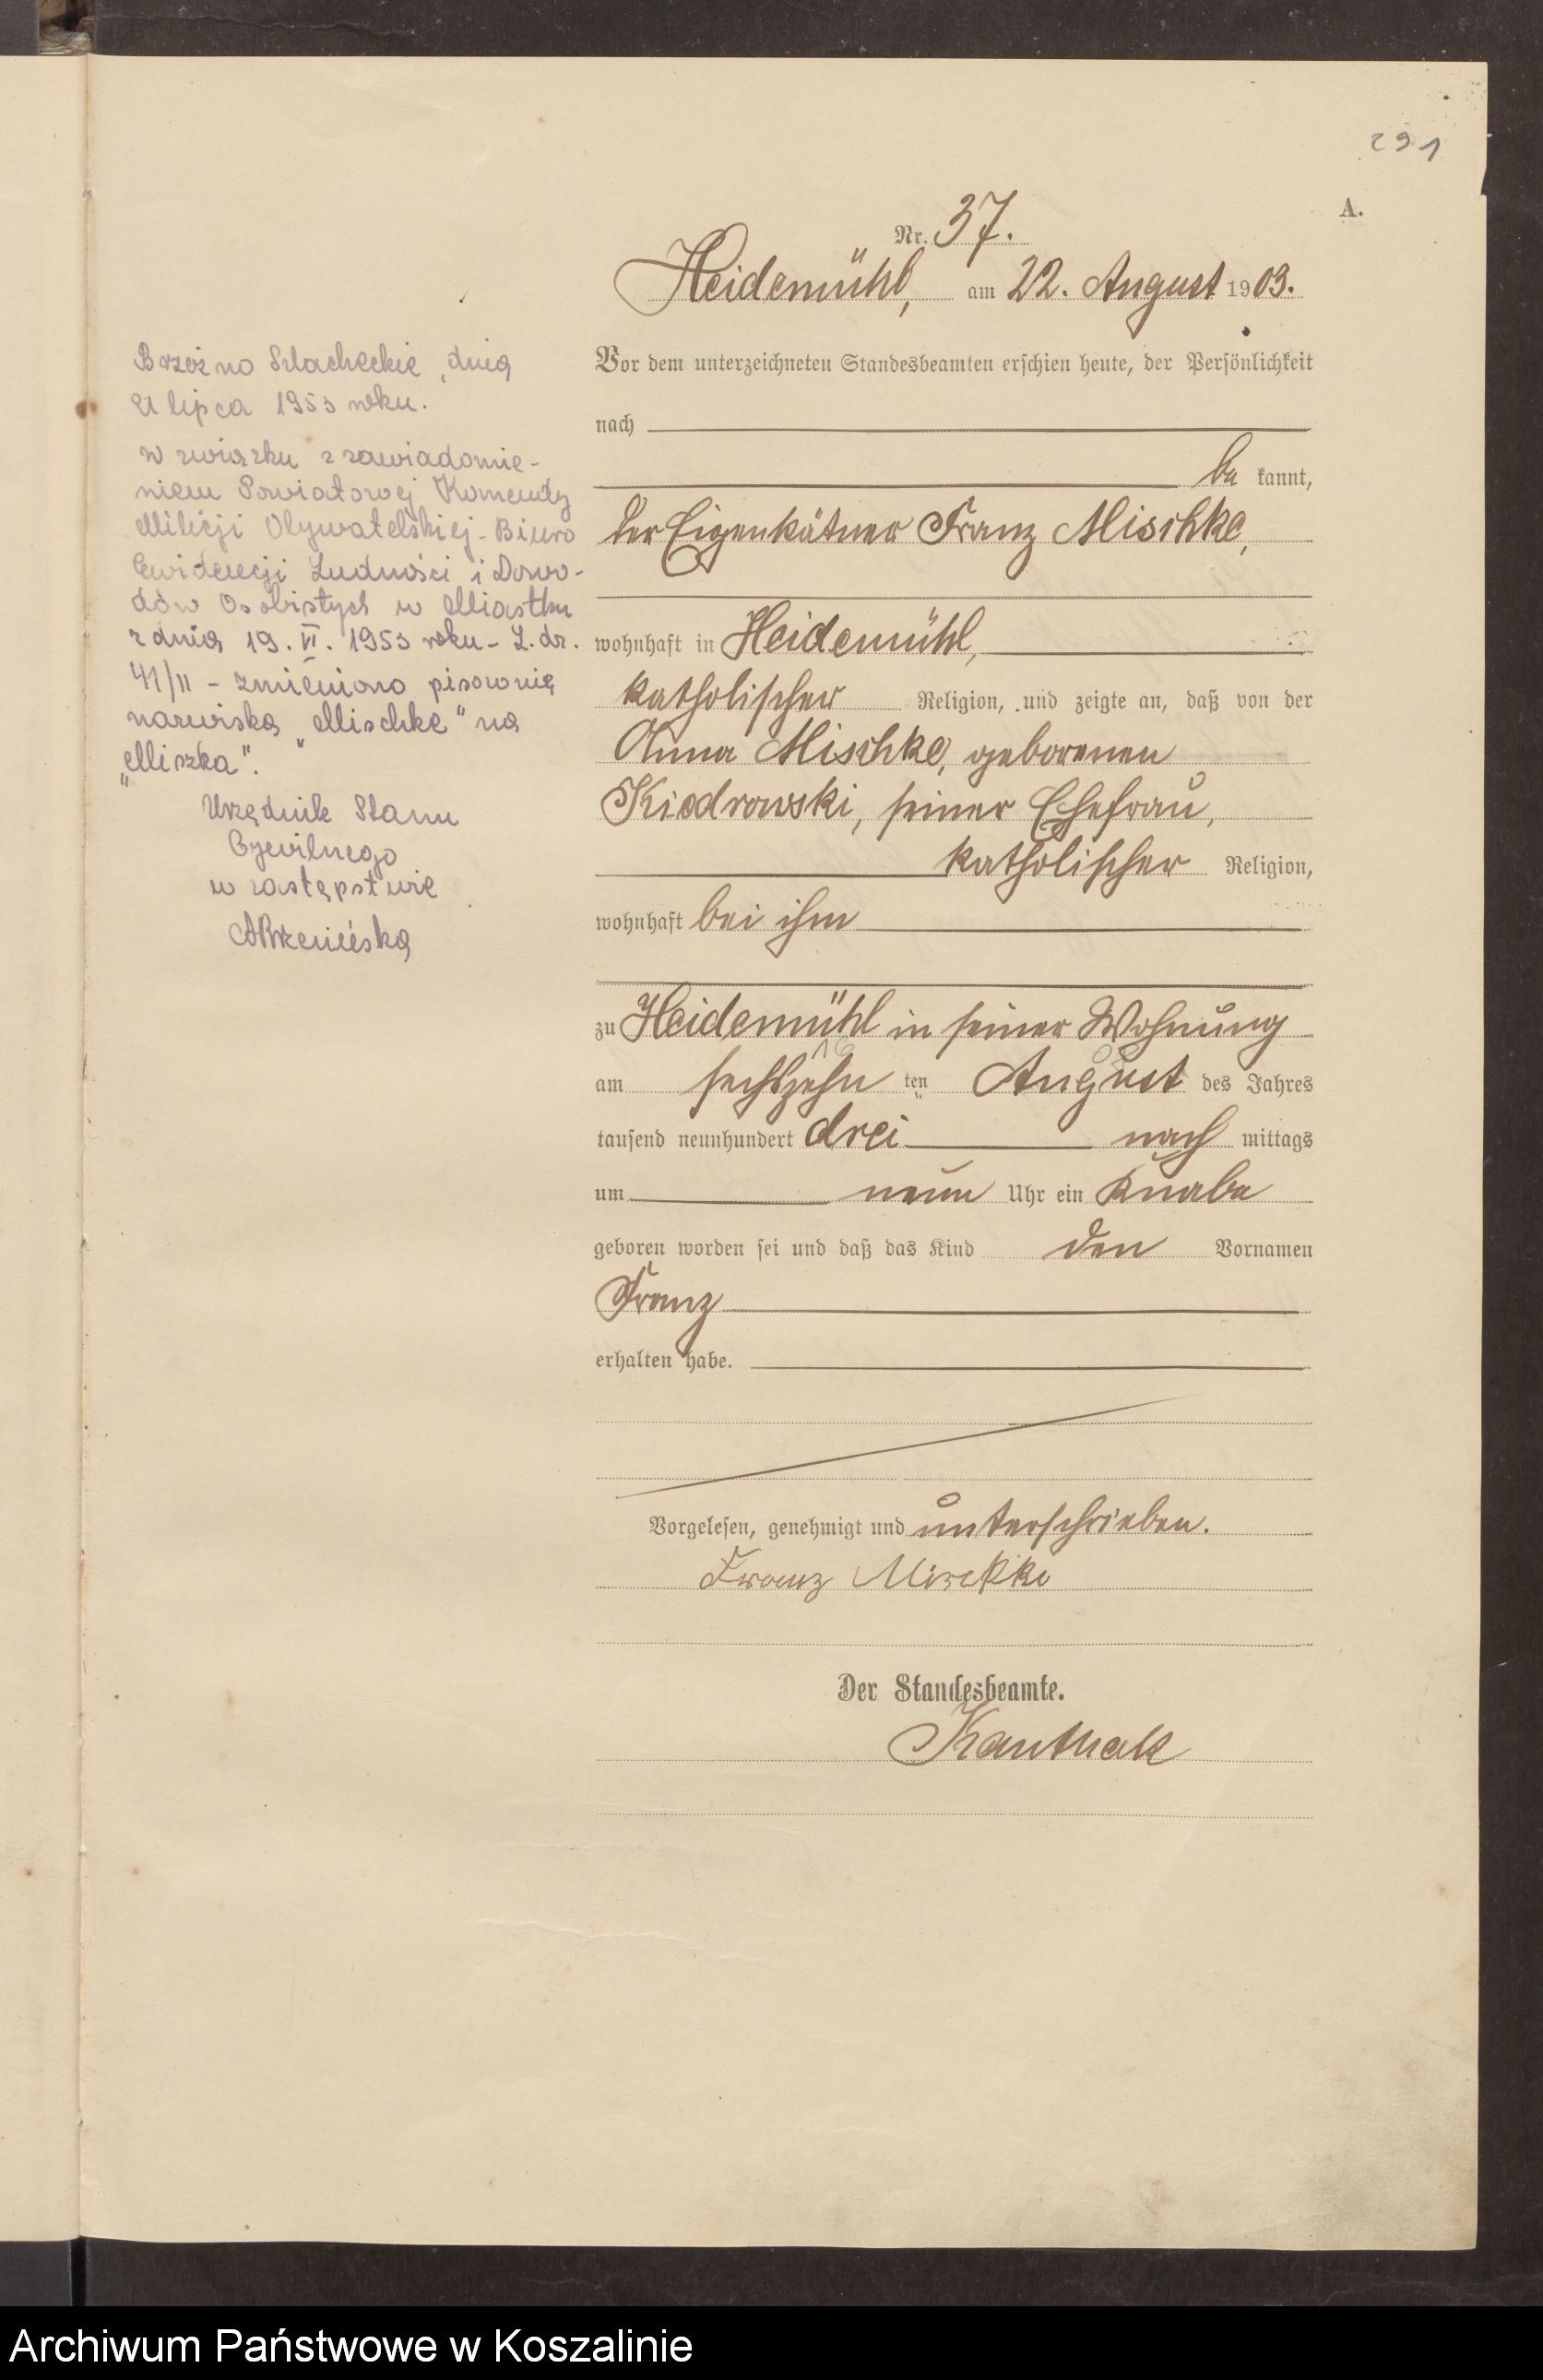 291
A.
Nr. 37.
Heidemühl, am 22. August 1903.
Vor dem unterzeichneten Standesbeamten erschien heute, der Persönlichkeit
nach
be kannt,
der Eigenkätner Franz Mischke,
wohnhaft in Heidemühl,
katholischer Religion, und zeigte an, daß von der
Anna Mischke, geborenen
Kiedrowski, seiner Ehefrau,
katholischer Religion,
wohnhaft bei ihm
zu Heidemühl in seiner Wohnung
am sechszehn ten August des Jahres
tausend neunhundert drei nach mittags
um neun Uhr ein Knabe
geboren worden sei und daß das Kind den Vornamen
Franz
erhalten habe.
Vorgelesen, genehmigt und unterschrieben.
Franz Mischke
Der Standesbeamte.
Kanthak
Brzeźno Szlacheckie, dnia
21 lipca 1953 roku.
W związku z zawiadomie-
niem Powiatowej Komendy
Milicji Obywatelskiej - Biuro
Ewidencji Ludności i Dowo-
dów Osobistych w Miastku
z dnia 19. VI. 1953 roku - L. dz.
41/11 - zmieniono pisownię
nazwiska „Mischke" na
„Miszka".
Urzędnik Stanu
Cywilnego
w zastępstwie
Archiwum Państwowe w Koszalinie